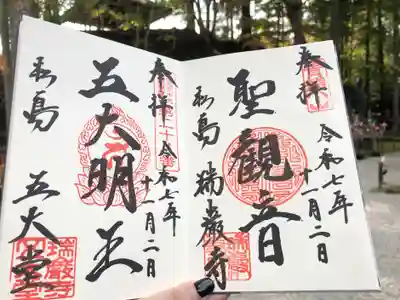 奉拝
令和七年
十一月二日
聖觀音
松島 瑞巖寺
奉拝
令和七年
十一月二日
五大明王
松島 五大堂
瑞巌寺